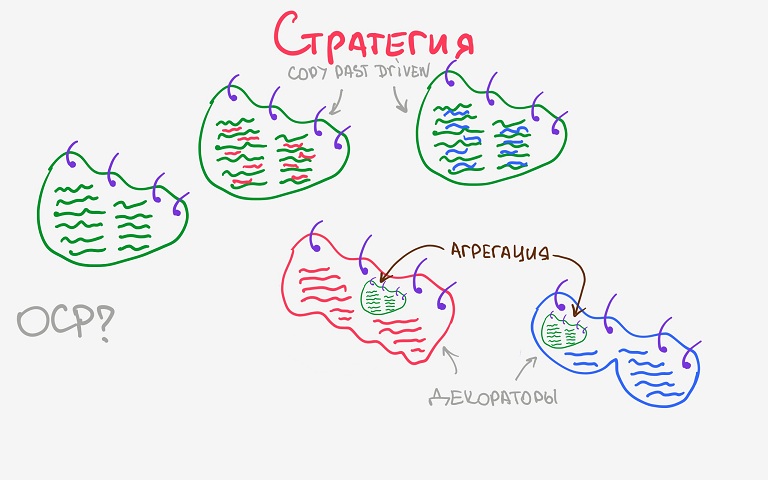 Стратегия
COPY PAST DRIVEN
АГРЕГАЦИЯ
OCP?
ДЕКОРАТОРЫ